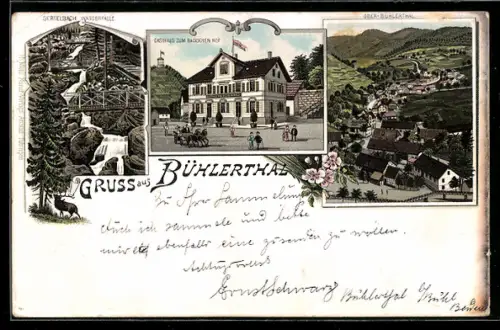 GERTELBACH WASSERFÄLLE
GASTHAUS ZUM BADISCHEN HOF
OBER-BÜHLERTHAL
GRUSS aus BÜHLERTHAL
Zu Ihrer Sammelung
auch ich sammele und bitte
mir ebenfalls eine zusenden zu wollen.
Achtungsvoll
Ernst Schwarz
Bühlerthal b/
Bühl